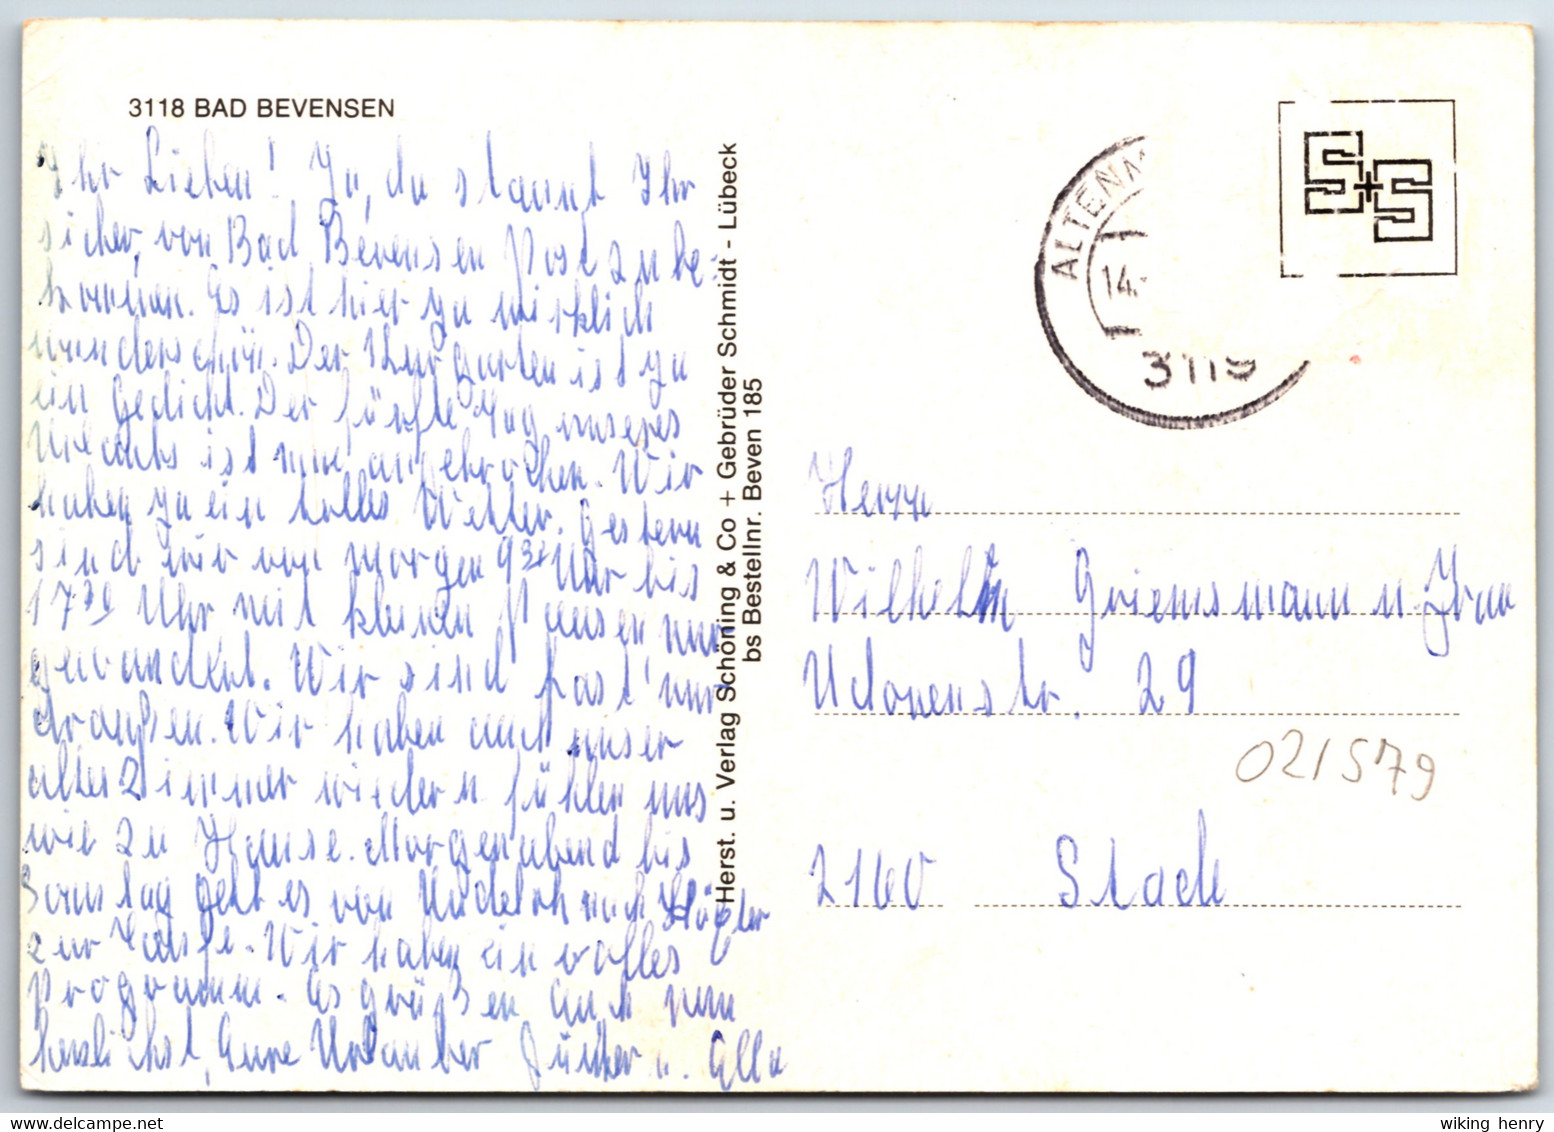 3118 BAD BEVENSEN
Ihr Lieben! Ja, da staunt Ihr
sicher, von Bad Bevensen Post zu be-
kommen. Es ist hier ja wirklich
wunderschön. Der Kurgarten ist ja
ein Gedicht. Der fünfte Tag unseres
Urlaubs ist nun angebrochen. Wir
haben ja ein tolles Wetter. Gestern
sind wir von morgen 9³⁰ Uhr bis
17³⁰ Uhr mit kleinen Pausen nur
gewandert. Wir sind fast nur
draußen. Wir haben auch unser
altes Zimmer wieder u. fühlen uns
wie zu Hause. Morgen abend bis
Sonntag geht es von nach
zur Taufe. Wir haben ein volles
Programm. Es grüßen Euch nun
herzlichst, Eure Urlauber u. Alla
Herst. u. Verlag Schöning & Co + Gebrüder Schmidt - Lübeck
bs Bestellnr. Beven 185
S+S
ALTENM
14.
3119
Herrn
Wilhelm Griemsmann u. Frau
Udonenstr. 29
021579
2160 Stade
wiking henry